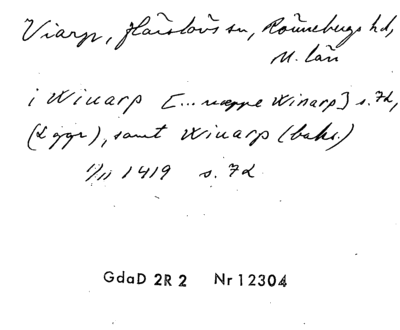 Viarp, Härslövs sn, Rönnebergs hd,
M. län
i Winarp [... uppe Winarp] s. 7d,
(2 ggr), samt Winarp (baks.)
1/11 1419 s. 7d
GdaD 2R 2 Nr 12304